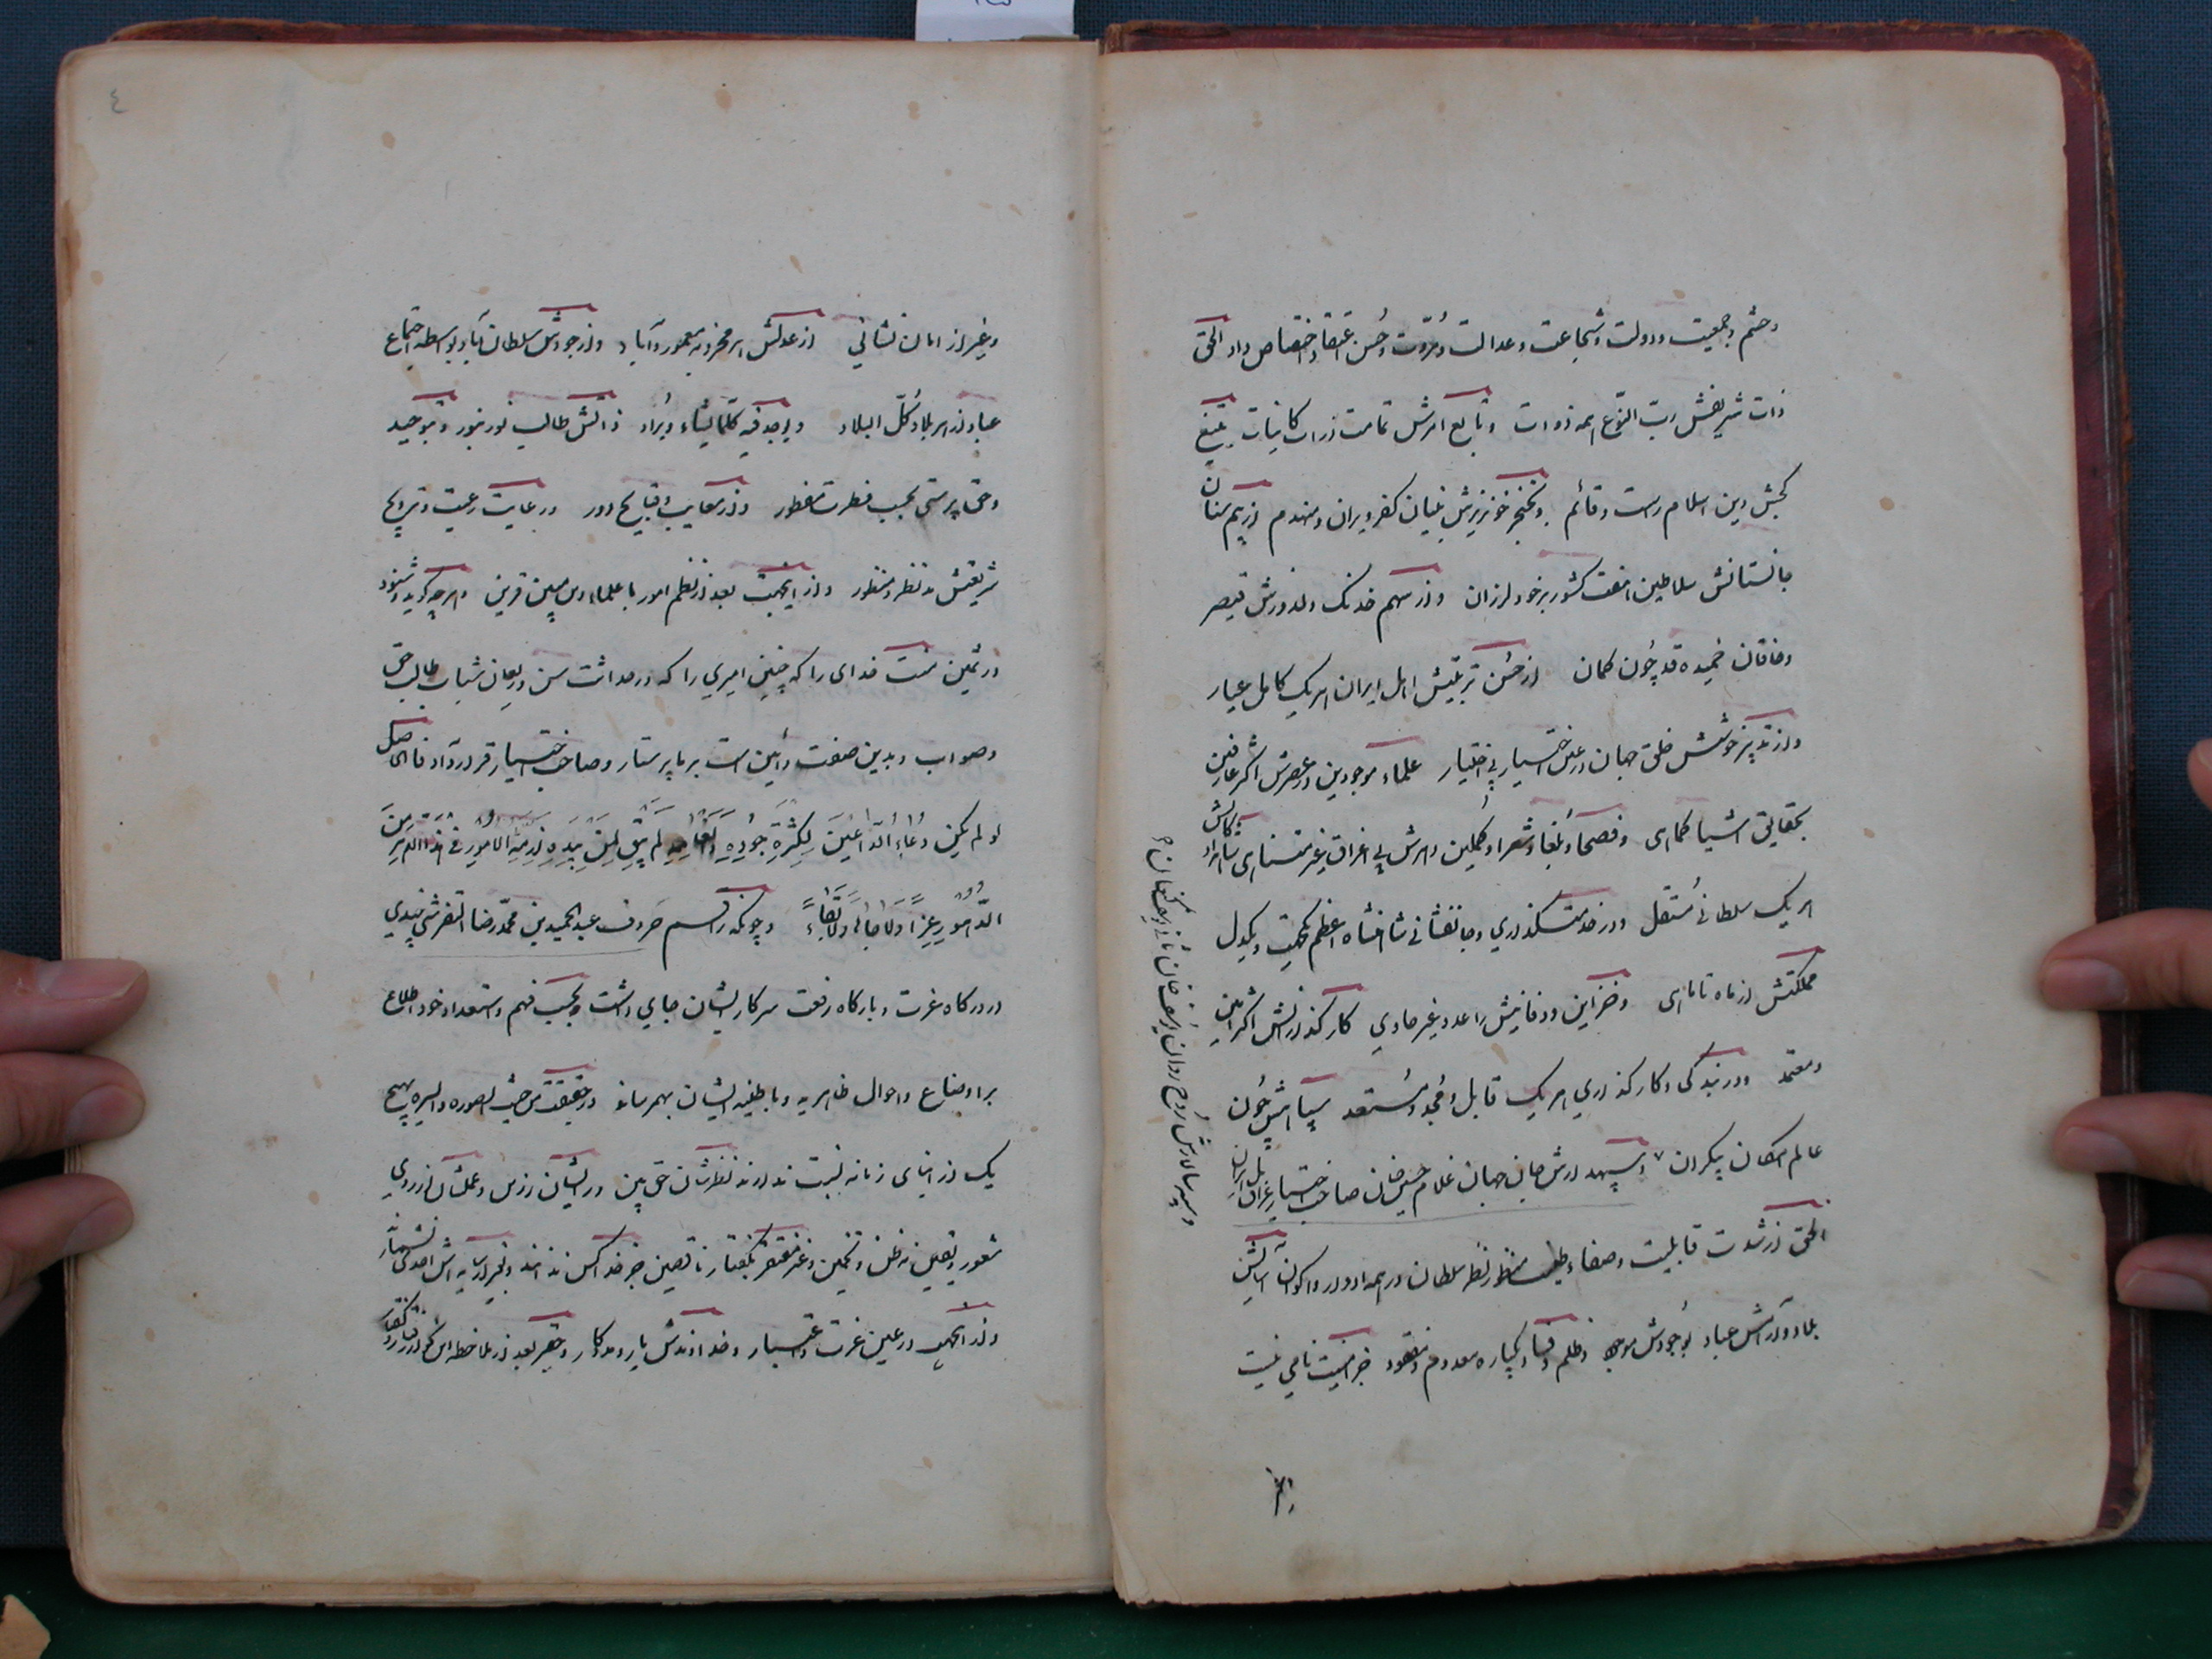 وحشم وجمعیت ودولت وشجاعت وعدالت ومُروّت وحُسن عتقاد اختصاص داد الحق
ذات شریفش ربّ النّوع همه ذوات وتابع امرش تمامت ذرات کاینات بتیغ
کجش دین اسلام راست وقائم وبخنجر خونریزش بنیان کفر ویران ومنهدم از بیم سنان
جانستانش سلاطین هفت کشور برخود لرزان واز سهم خدنک دلدوزش قیصر
وخاقان خمیده قد چُون کمان از حُسن تربیتش اهل ایران هریک کامل عیار
واز تدبیر خوشش خلق جهان در عین اختیار بی اختیار علماء موجودین در عصرش اکثر عارفین
بحقایق اشیا کماهی وفصحا وبُلغا وشعرا وکُملین درش بی اغراق غیر متناهی
هریک سلطانی مُستقل ودر خدمتکذاری وجانفشانی شاهنشاه اعظم یکجهت ویکدل
مملکتش از ماه تا ماهی وخزاین ودفاینش را عدد غیر حاوی کارکذارانش اکثر امین
ومعتمد ودر بندکی وکارکذاری هریک قابل ومُجد ومُستعد سپاهش چُون
عالم امکان بیکران وسپهدارش جان جهان غلام حسین خان صاحب اختیار عراق
وسپه سالارش رُوح روان یوسف خان ثانی یوسف کنعان
الحق از شدت قابلیت وصفاء طینت منظور نظر سلطان در همه ادوار واکوان آسایش
بلاد وآرامش عباد بوُجودش موجود وظلم وفساد یکباره معدوم ومفقود جز امنیت نامی نیست
وغیر از
٤
وغیر از امان نشانی از عدلش هر مخروبه معمور وآباد واز جودش سلطان آباد بواسطه اجتماع
عباد از هر بلاد کُلّ البلاد ویوجد فیه کلّما یشاء ویُراد ذاتش طالب نور بنور وتوحید
وحق پرستی بحسب فطرت مفطور واز معایب وقبایح دور ورعایت رعیت وترویج
شریعتش مدنظر ومنظور واز اینجهت بعد از نظم امور با علماء دین مبین قرین وهرچه کوید وشنود
در ثمین منت خدای را که چنین امیری را که در حداثت سن وریعان شباب طالب حق
وصواب وبدین صفوت وآئین است بر ما پرستار وصاحب اختیار قرار داد فالحاصل
لو لم یکن دُعاءُ الدّاعینَ لِکثرةِ جُودِهِ لَم یَبقَ لِمَن بیدهِ ازمّة الامور فی هذَا الدّهرِ مِنَ
الدّهُورِ عِزّاً ولا جاهاً ولا بَقاءً وچونکه راقم حروف عبدالحمید بن محمّدرضا التفرشی
در درکاه عزت وبارکاه رفعت سرکار ایشان جای داشت وبحسب فهم واستعداد خود اطلاع
بر اوضاع واحوال ظاهریه وباطنیه ایشان بهمرساند ودر حقیقت من حیث الصوره والسیره بهیچ
یک از ابنای زمانه نسبت ندارند نظرشان حق بین ورأیشان رزین وعملشان از روی
شعور ویقین نه ظن وتخمین وغیر مفتقر بکفتار ناقصین جز خدا کس ندانند وبغیر از سایه اش احدی نشناسند
واز اینجهت در عین عزت واعتبار وخداوندش یار ومددکار وحقیر بعد از ملاحظه